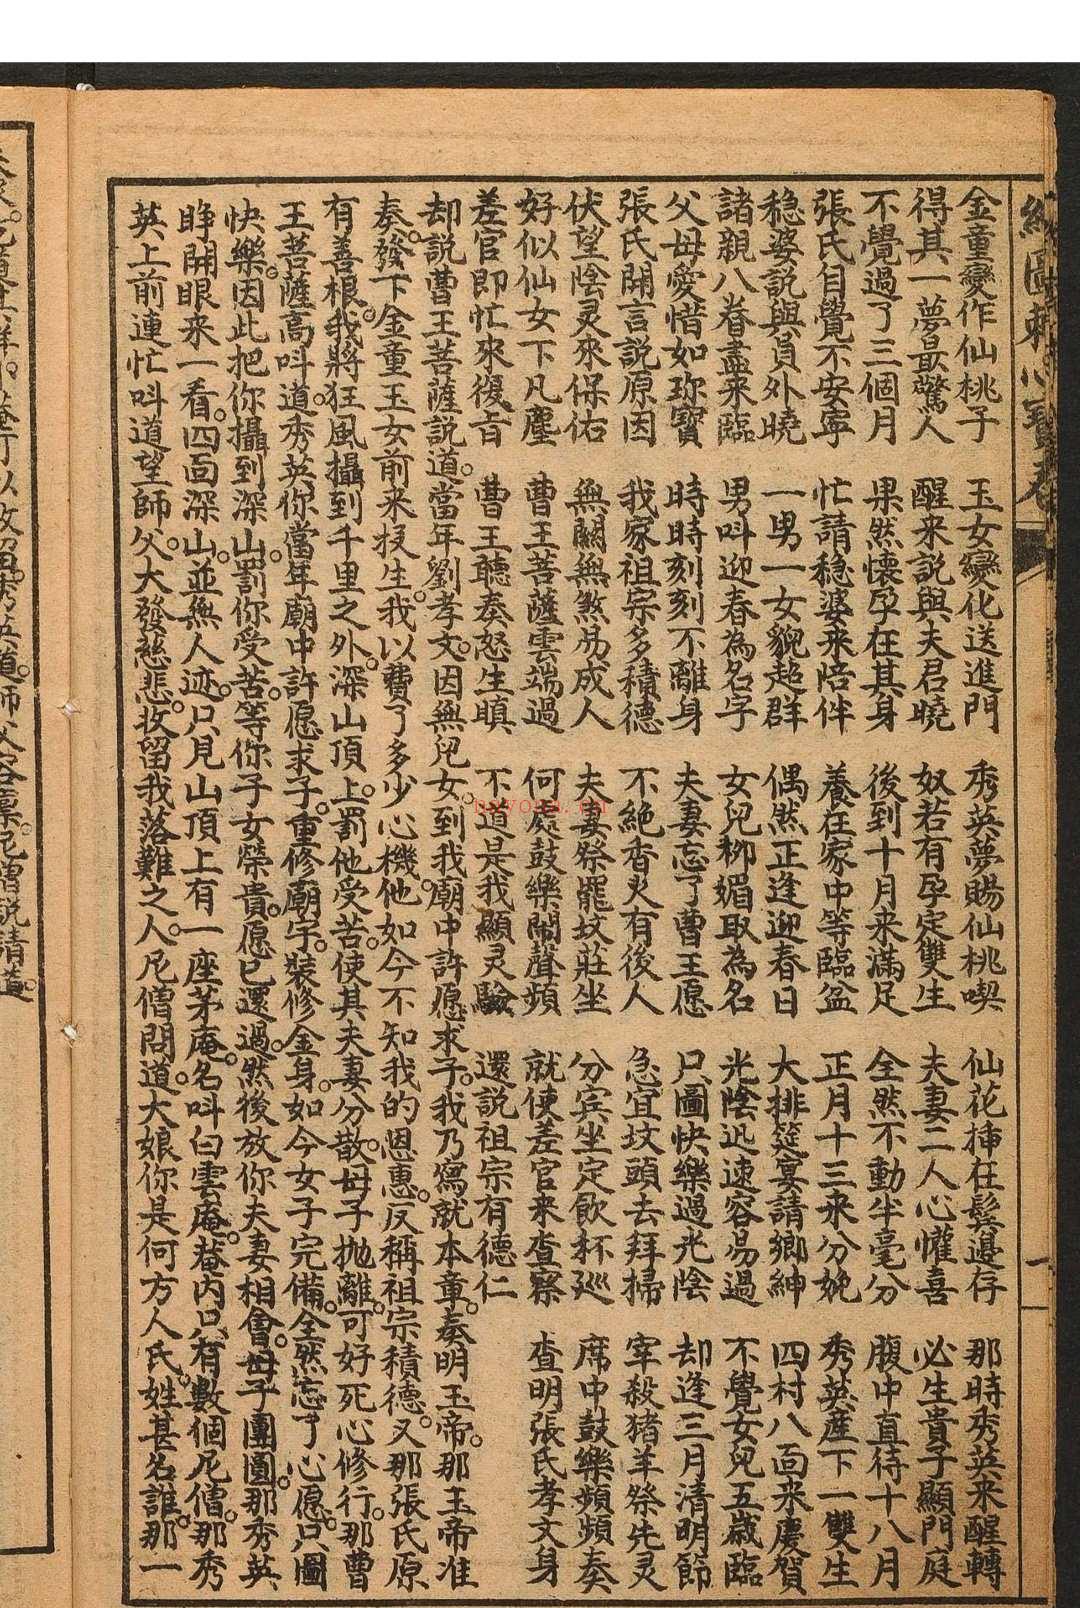 金童變作仙桃子 玉女變化送進門 秀英夢賜仙桃喫 仙花揷在鬂邉存 那時秀英来醒轉
得其一夢最驚人 醒来説與夫君曉 奴若有孕定雙生 夫妻二人心懽喜 必生貴子顯門庭
不覺過了三個月 果然懷孕在其身 後到十月来滿足 全然不動半毫分 腹中直待十八月
張氏自覺不安寧 忙請穏婆来陪伴 養在家中等臨盆 正月十三来分娩 秀英産下一雙生
穏婆説與員外曉 一男一女貌超群 偶然正逢迎春日 大排筵宴請鄉紳 四村八面来慶賀
諸親八眷盡来臨 男呌迎春為名字 女兒柳媚取為名 光陰迅速容易過 不覺女兒五歲臨
父母愛惜如珎寳 時時刻刻不離身 夫妻忘了曹王愿 只圖快樂過光陰 却逢三月清明節
張氏開言説原因 我家祖宗多積德 不絶香火有後人 急宜坟頭去拜掃 宰殺猪羊祭先灵
伏望陰灵来保佑 無關無煞易成人 夫妻祭罷坟莊坐 分賓坐定飲杯巡 席中鼓樂頻頻奏
好似仙女下凡塵 曹王菩薩雲端過 何處鼓樂鬧聲頻 就使差官来查察 查明張氏孝文身
差官即忙来復旨 曹王聽奏怒生瞋 不道是我顯灵驗 還説祖宗有德仁
却説曹王菩薩説道。當年劉孝文。因無兒女。到我廟中許愿求子。我乃寫就本章。奏明玉帝。那玉帝准
奏。發下金童玉女前来投生。我以費了多少心機。他如今不知我的恩惠。反稱祖宗積德。又那張氏原
有善根。我將狂風攝到千里之外。深山頂上。罰他受苦。使其夫妻分散。母子抛離。可好死心修行。那曹
王菩薩高呌道。秀英你當年廟中許愿求子。重修廟宇。裝修金身。如今女子完備。全然忘了心愿。只圖
快樂。因此把你攝到深山。罰你受苦。等你子女榮貴。愿已還過。然後放你夫妻相會。母子團圓。那秀英
睁開眼来一看。四面深山。並無人迹。只見山頂上有一座茅庵。名呌白雲庵。菴内只有數個尼僧。那秀
英上前連忙呌道望師父。大發慈悲。收留我落難之人。尼僧問道。大娘你是何方人氏。姓甚名誰。那一